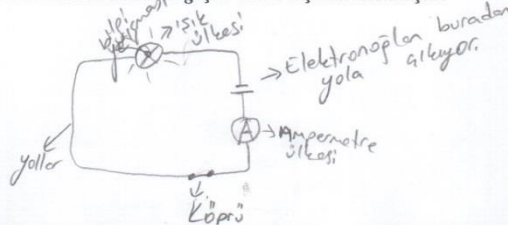 ışık
ülkesi
Elektronoğlan buradan
yola çıkıyor.
A
Ampermetre
ülkesi
yollar
Köprü